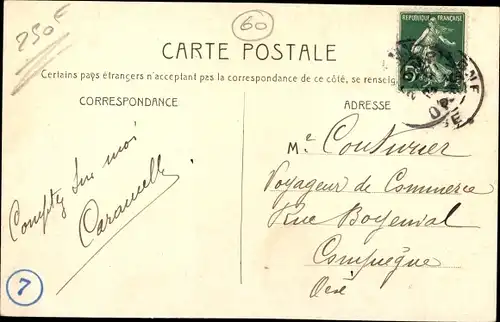 250F
60
CARTE POSTALE
RÉPUBLIQUE FRANÇAISE
Certains pays étrangers n'acceptant pas la correspondance de ce côté, se renseig
CORRESPONDANCE
ADRESSE
Comptez sur moi
Caramelle
Mr Couturier
Voyageur de Commerce
Rue
Compiègne
Oise
7